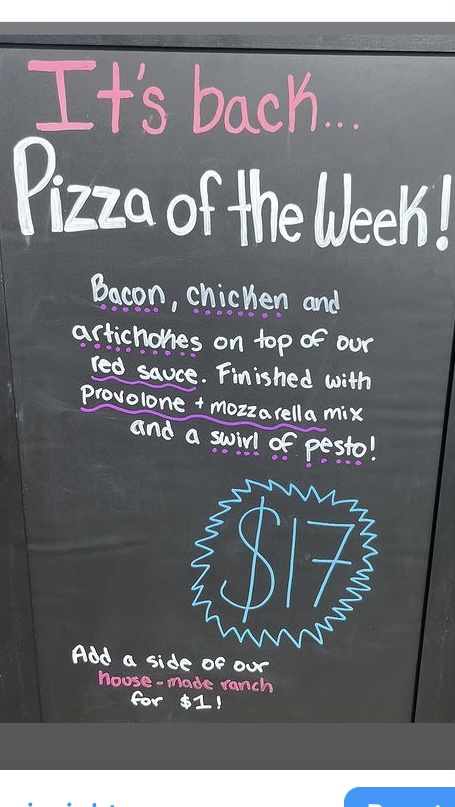 It's back...
Pizza of the Week!
Bacon, chicken and
artichokes on top of our
red sauce. Finished with
provolone + mozzarella mix
and a swirl of pesto!
$17
Add a side of our
house-made ranch
for $1!